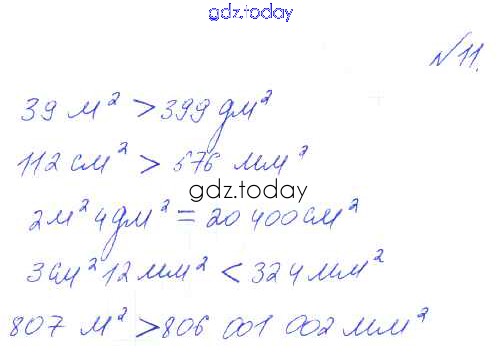 gdz.today
№11.
39 м² > 399 дм²
112 см² > 576 мм²
gdz.today
2м² 4дм² = 20 400см²
3см² 12 мм² < 324 мм²
807 м² > 806 001 002 мм²